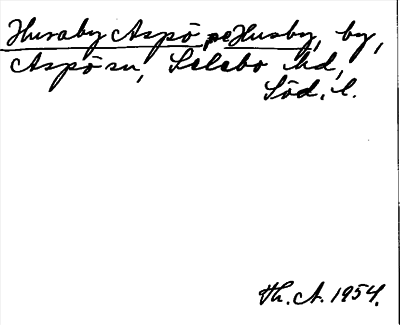 Husaby Aspö se Husby, by,
Aspö sn, Selebo hd,
Söd. l.
Th. A. 1954.